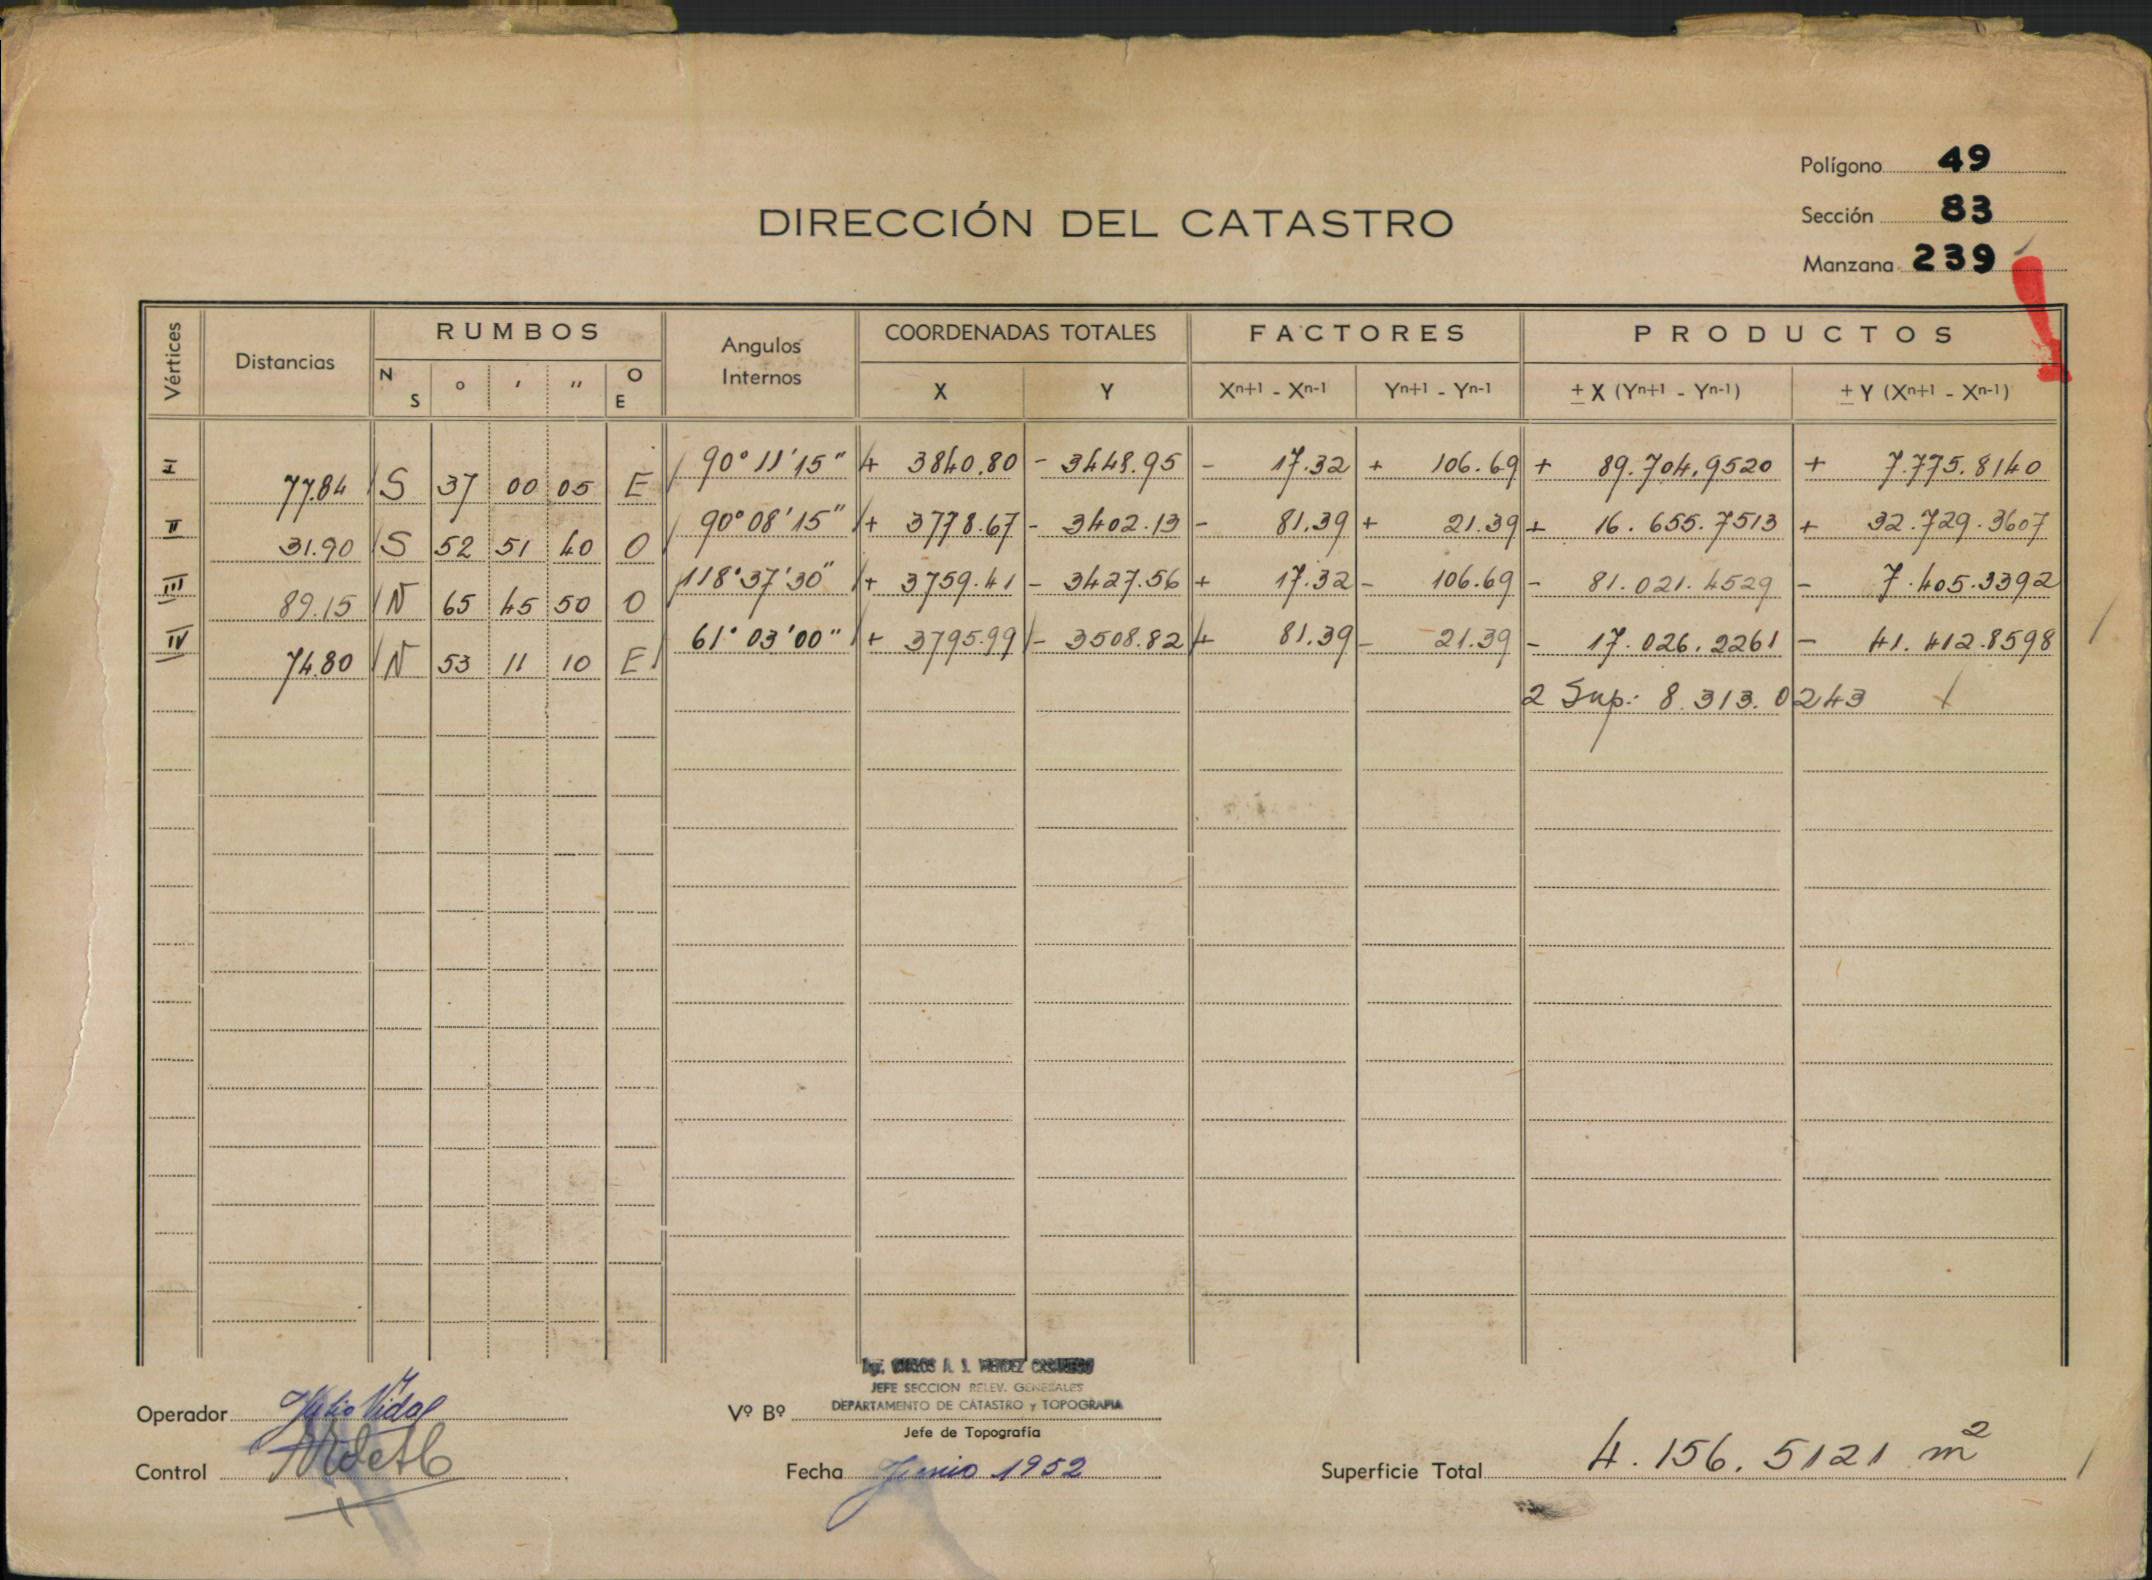 Polígono 49
DIRECCIÓN DEL CATASTRO
Sección 83
Manzana 239
Vértices Distancias RUMBOS Angulos Internos COORDENADAS TOTALES FACTORES PRODUCTOS
N S ° ' " O E X Y Xn+1 - Xn-1 Yn+1 - Yn-1 ± X (Yn+1 - Yn-1) ± Y (Xn+1 - Xn-1)
I 77.84 S 37 00 05 E 90° 11' 15" + 3840.80 - 3448.95 - 17.32 + 106.69 + 89.704.9520 + 7.775.8140
II 31.90 S 52 51 40 O 90° 08' 15" + 3778.67 - 3402.13 - 81.39 + 21.39 + 16.655.7513 + 32.729.3607
III 89.15 N 65 45 50 O 118° 37' 30" + 3759.41 - 3427.56 + 17.32 - 106.69 - 81.021.4529 - 7.405.3392
IV 74.80 N 53 11 10 E 61° 03' 00" + 3795.99 - 3508.82 + 81.39 - 21.39 - 17.026.2261 - 41.412.8598
2 Sup: 8.313.0243
A. S. MENDEZ
JEFE SECCION RELEV. GENERALES
Operador Julio Vidal Vº Bº DEPARTAMENTO DE CATASTRO y TOPOGRAFIA
Jefe de Topografía
Control Fecha Junio 1952 Superficie Total 4.156.5121 m²